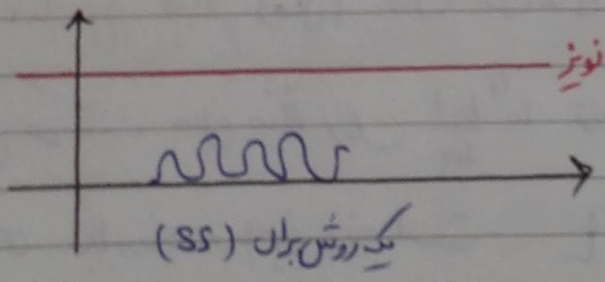 نویز
یک روش برای (SS)